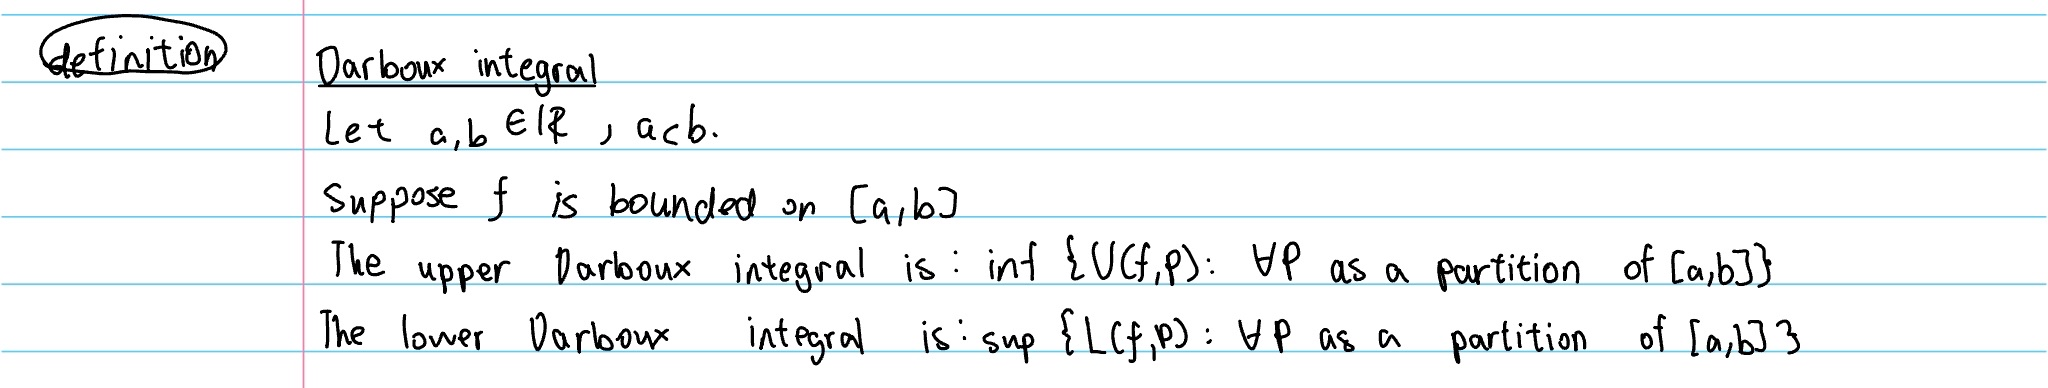 definition
Darboux integral
Let a,b ∈ ℝ , a<b.
Suppose f is bounded on [a,b]
The upper Darboux integral is: inf {U(f,P): ∀P as a partition of [a,b]}
The lower Darboux integral is: sup {L(f,P): ∀P as a partition of [a,b]}